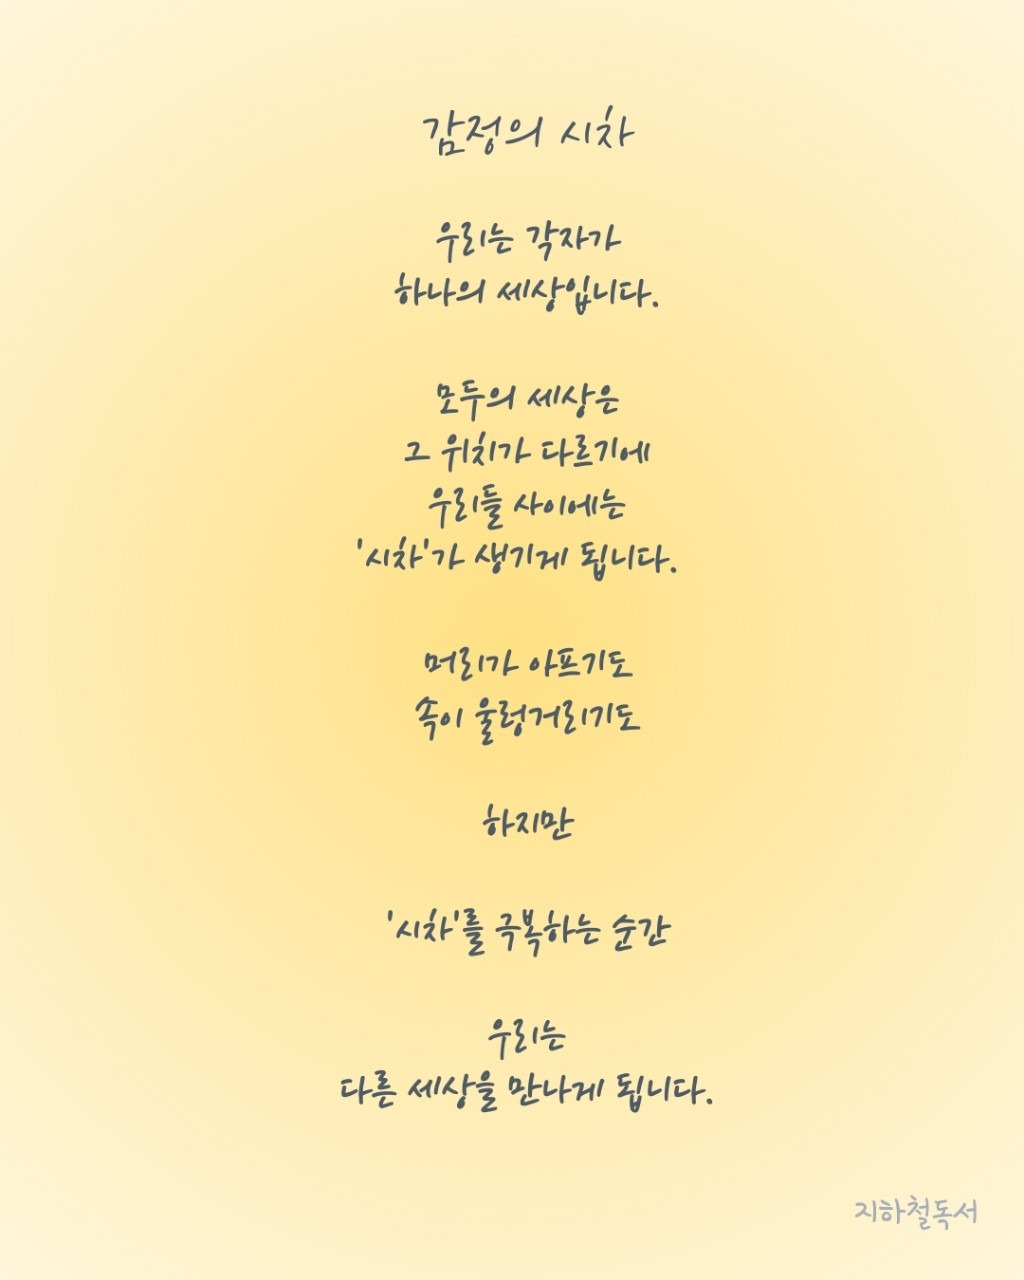 감정의 시차
우리는 각자가
하나의 세상입니다.
모두의 세상은
그 위치가 다르기에
우리들 사이에는
'시차'가 생기게 됩니다.
머리가 아프기도
속이 울렁거리기도
하지만
'시차'를 극복하는 순간
우리는
다른 세상을 만나게 됩니다.
지하철독서